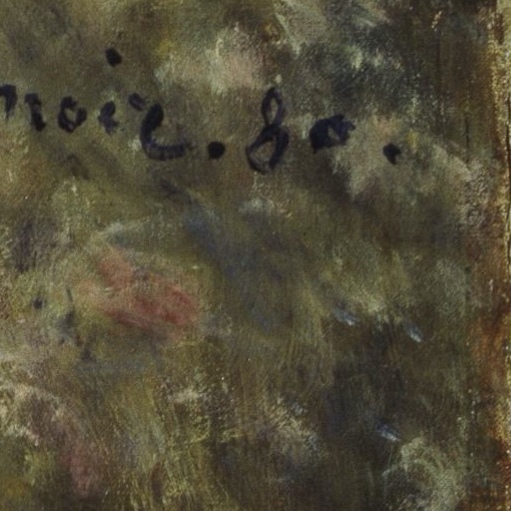 noir. 80.